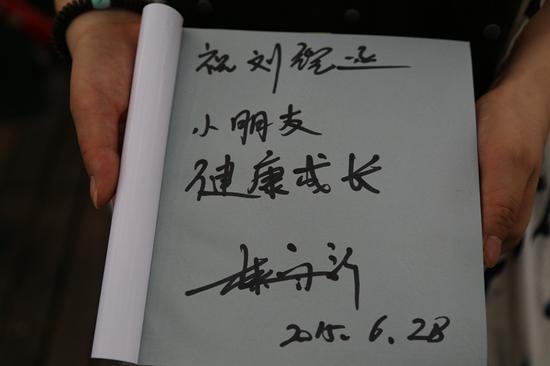 祝刘
小朋友
健康成长
2015.6.28